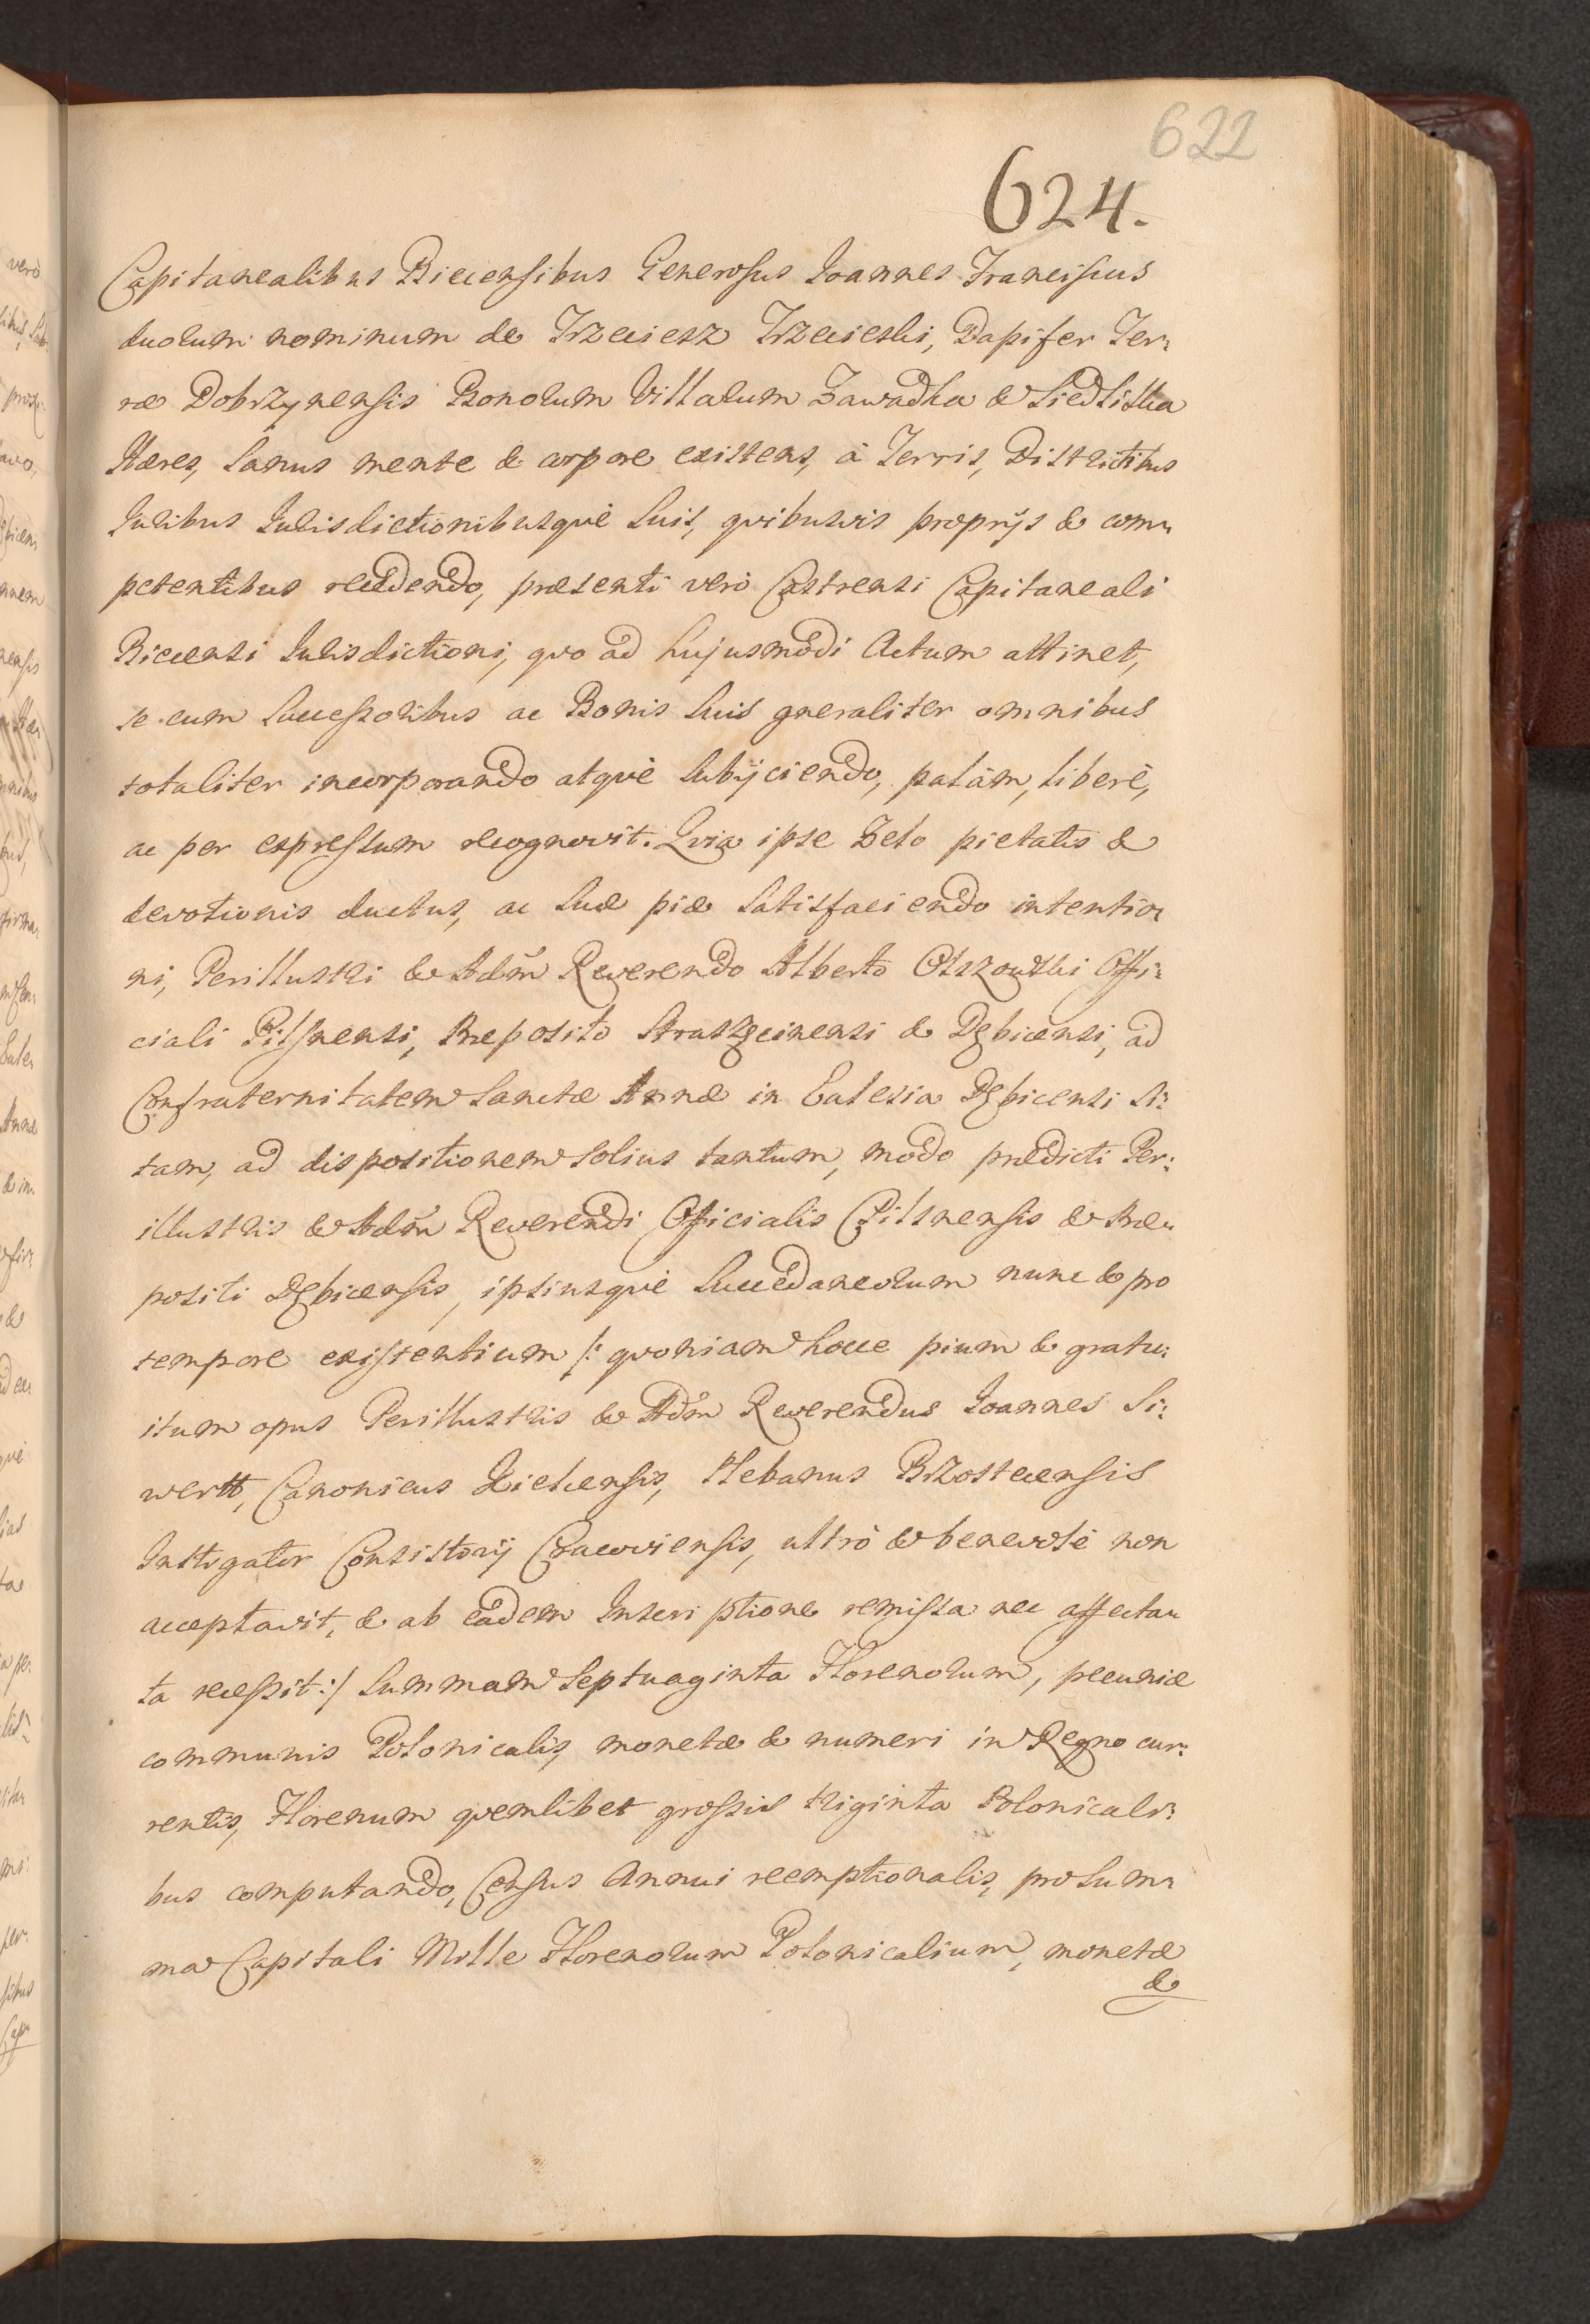 622
624.
Capitanealibus Biecensibus Generosus Joannes Franciscus
duorum nominum de Trzeciesz Trzecieski, Dapifer Ter:
ræ Dobrzynensis Bonorum Villarum Zawadka & Siedliska
Hæres, sanus mente & corpore existens, à Terris, Districtibus
Juribus Jurisdictionibusquè suis, quibusvis proprijs & com:
petentibus recedendo, præsenti verò Castrensi Capitaneali
Biecensi Jurisdictioni, quo ad hujusmodi Actum attinet,
se cum successoribus ac Bonis suis gñeraliter omnibus
totaliter incorporando atquè subijciendo, palàm, liberè,
ac per expressum recognovit. Quia ipse Zelo pietatis &
devotionis ductus, ac suæ piæ satisfaciendo intentio:
ni, Perillustri & Adm̃ Reverendo Alberto Olszowski Offi:
ciali Pilsnensi, Præposito Straszęcinensi & Dębicensi, ad
Confraternitatem Sanctæ Annæ in Eclesia Dębicensi si:
tam, ad dispositionem solius tantum, modo prædicti Per:
illustris & Adm̃ Reverendi Officialis Pilsnensis & Præ:
positi Dębicensis, ipsiusquè succedaneorum nunc & pro
tempore existentium /: quoniam hocce pium & gratu:
itum opus Perillustris & Adm̃ Reverendus Joannes Si:
wertt, Canonicus Kielcensis, Plebanus Brzostecensis
Instigator Consistorij Cracoviensis, ultrò & benevolè non
acceptavit, & ab eadem Inscriptione remissa nec affecta:
ta recessit :/ summam septuaginta Florenorum, pecuniæ
communis Polonicalis, monetæ & numeri in Regno cur:
rentis, Florenum quemlibet grossis triginta Polonicali:
bus computando, Census Annui reemptionalis, pro sum:
ma Capitali Mille Florenorum Polonicalium, monetæ
&